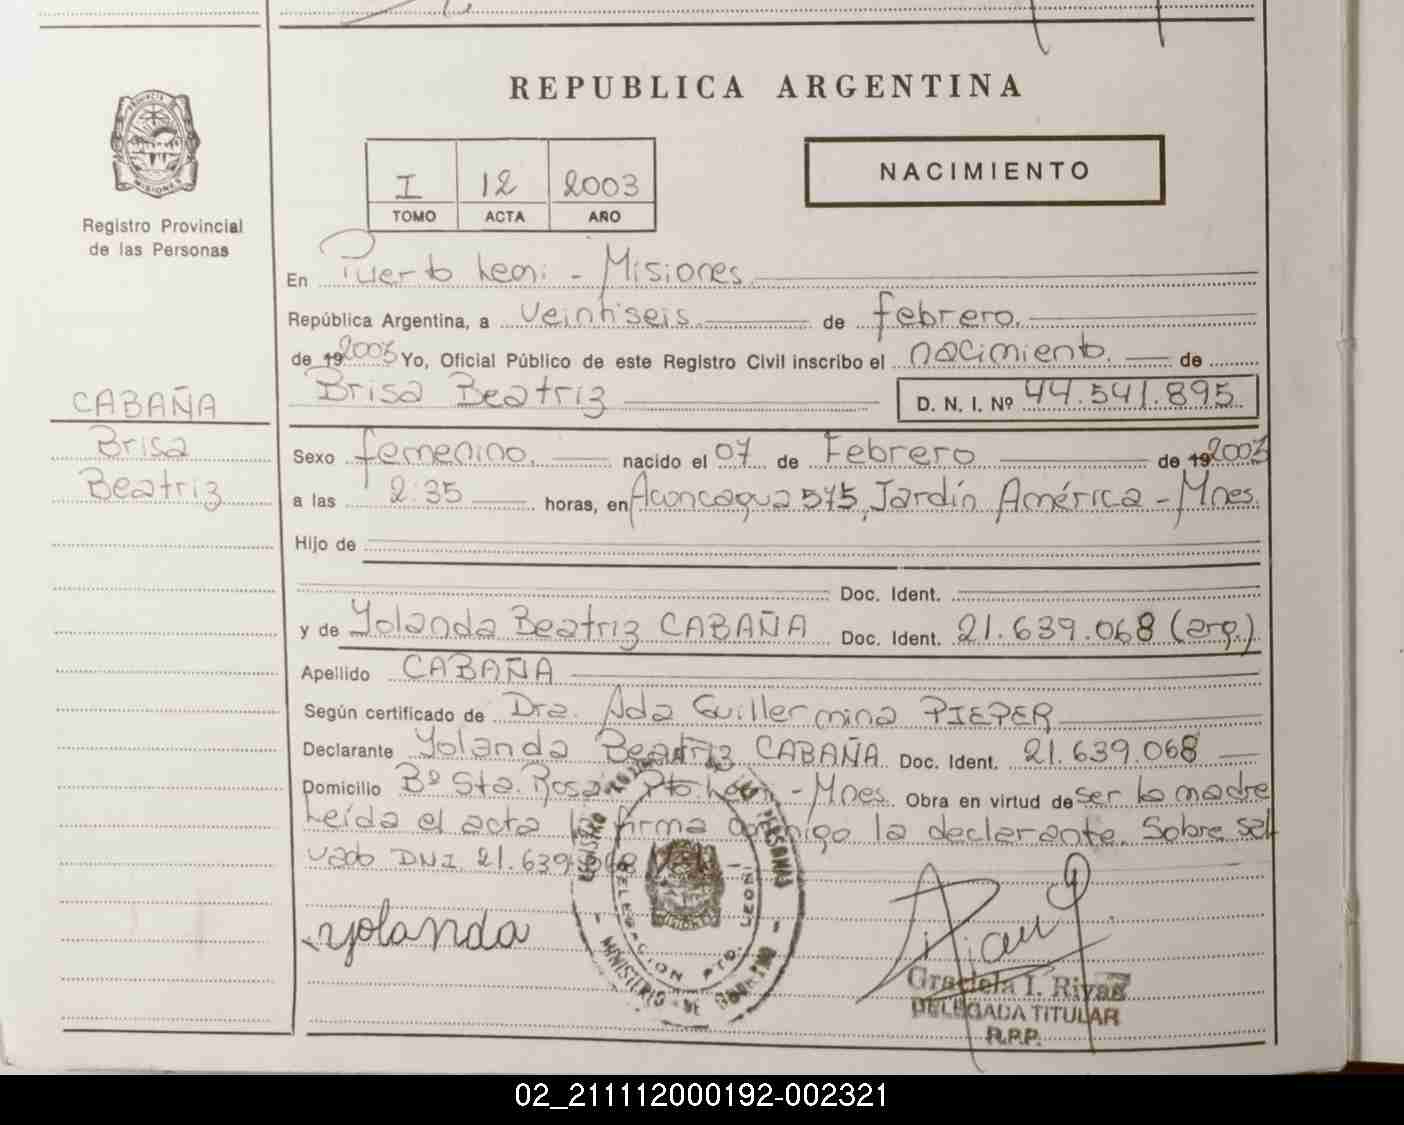 REPUBLICA ARGENTINA
PROVINCIA DE
MISIONES
Registro Provincial
de las Personas
I 12 2003
TOMO ACTA AÑO
NACIMIENTO
En Puerto Leoni - Misiones
República Argentina, a veintiseis de febrero
de 19 2003 Yo, Oficial Público de este Registro Civil inscribo el nacimiento de
Brisa Beatriz D. N. I. Nº 44.541.895
CABAÑA
Brisa
Beatriz
Sexo femenino nacido el 07 de Febrero de 19 2003
a las 2:35 horas, en Aconcagua 575, Jardín América - Mnes.
Hijo de
Doc. Ident.
y de Yolanda Beatriz CABAÑA Doc. Ident. 21.639.068 (arg.)
Apellido CABAÑA
Según certificado de Dra. Ada Guillermina PIEPER
Declarante Yolanda Beatriz CABAÑA Doc. Ident. 21.639.068
Domicilio Bº Sta. Rosa Pto. Leoni - Mnes. Obra en virtud de ser la madre
Leída el acta la firma conmigo la declarante. Sobre sal
vado DNI 21.639.068
REGISTRO DE LAS PERSONAS
DELEGACION PTO. LEONI
MINISTERIO DE GOBIERNO
yolanda
Graciela I. Rivas
DELEGADA TITULAR
R.P.P.
02_211112000192-002321